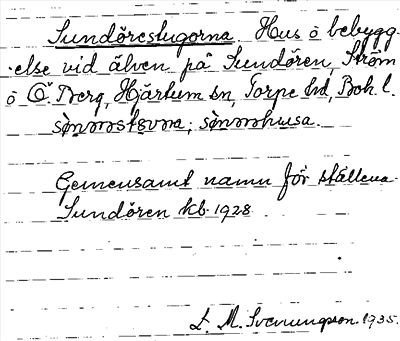 Sundörestugorna. Hus o bebygg-
-else vid älven på Sundören, Ström
o Ö. Berg, Hjärtum sn, Torpe hd, Boh. l.
Gemensamt namn för ställena
Sundören kb. 1928
L. M. Svenungsson. 1935.